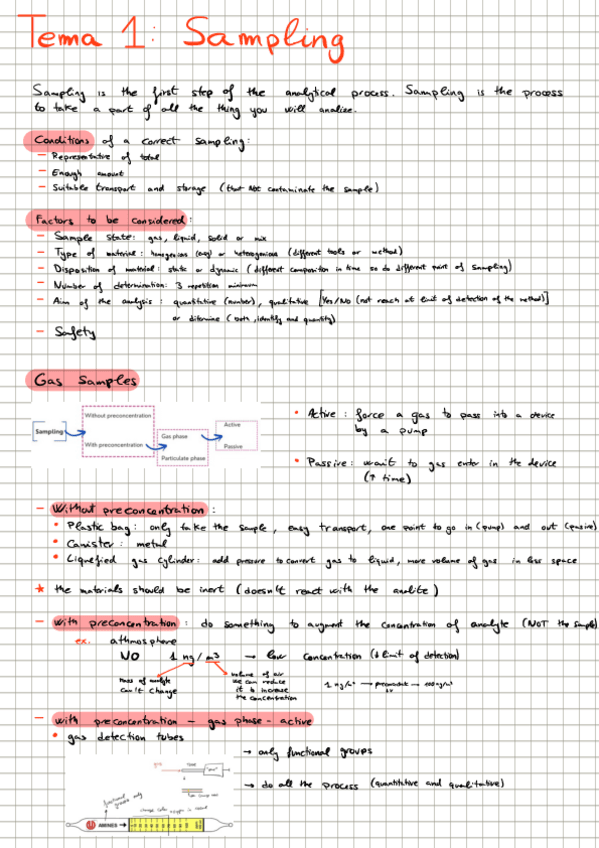 Tema 1: Sampling
Sampling is the first step of the analytical process. Sampling is the process
to take a part of all the thing you will analize.
Conditions of a correct sampling:
- Representative of total
- Enough amount
- Suitable transport and storage (that Not contaminate the sample)
Factors to be considered:
- Sample state: gas, liquid, solid or mix
- Type of material: homogenious (easy) or heterogenious (different tools or method)
- Disposition of material: static or dynamic (different composition in time so do different part of sampling)
- Number of determination: 3 repetition minimum
- Aim of the analysis: quantitative (number), qualitative [Yes/No (not reach at limit of detection of the method)]
or ditermine (both, identify and quantify)
- Safety
Gas Samples
Sampling
Without preconcentration
With preconcentration
Gas phase
Particulate phase
Active
Passive
• Active: force a gas to pass into a device
by a pump
• Passive: wait to gas enter in the device
(↑ time)
- Without preconcentration:
• Plastic bag: only take the sample, easy transport, one point to go in (pump) and out (pasive)
• Canister: metal
• Liquefied gas cylinder: add pressure to convert gas to liquid, more volume of gas in less space
* the materials should be inert (doesn't react with the analite)
- with preconcentration: do something to augment the concentration of analyte (NOT the sample)
ex. athmosphere
NO 1 ng/m³ → low concentration (↓ limit of detection)
mass of analyte
can't change
volume of air
we can reduce
it to increase
the concentration
- with preconcentration - gas phase - active
• gas detection tubes
→ only functional groups
→ do all the process (quantitative and qualitative)
functional
groups only
AMINES